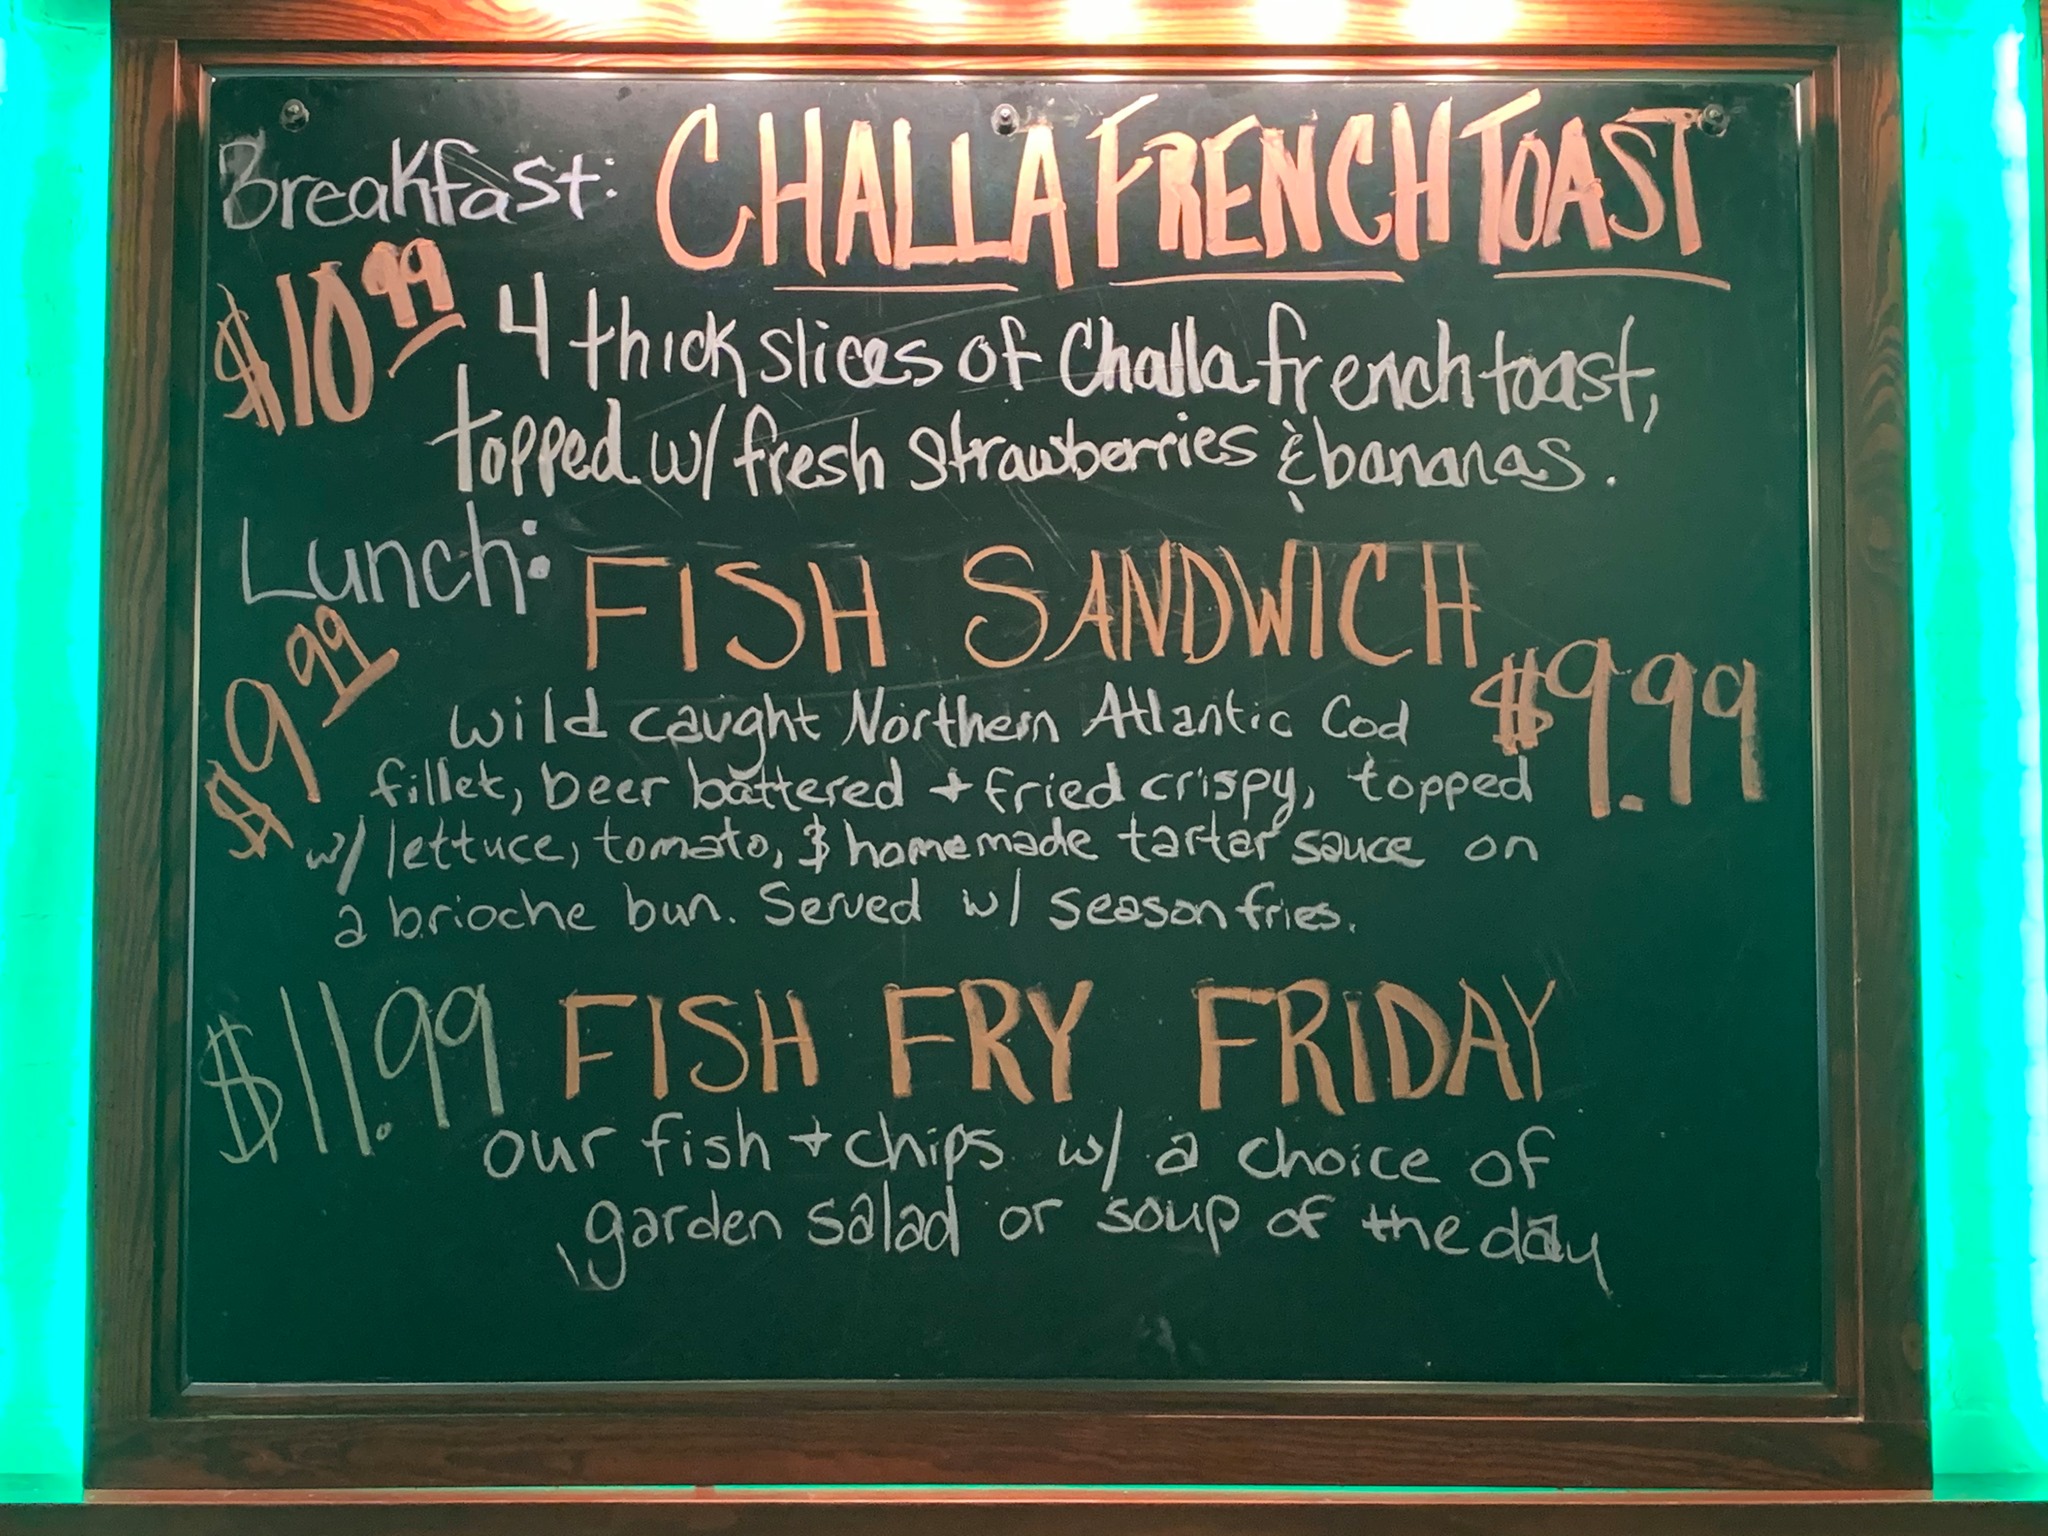 Breakfast: CHALLA FRENCH TOAST
$10.99
4 thick slices of Challa french toast,
topped w/ fresh strawberries & bananas.
Lunch: FISH SANDWICH
$9.99
$9.99
wild caught Northern Atlantic Cod
fillet, beer battered + fried crispy, topped
w/ lettuce, tomato, & homemade tartar sauce on
a brioche bun. Served w/ season fries.
$11.99 FISH FRY FRIDAY
our fish + chips w/ a choice of
garden salad or soup of the day